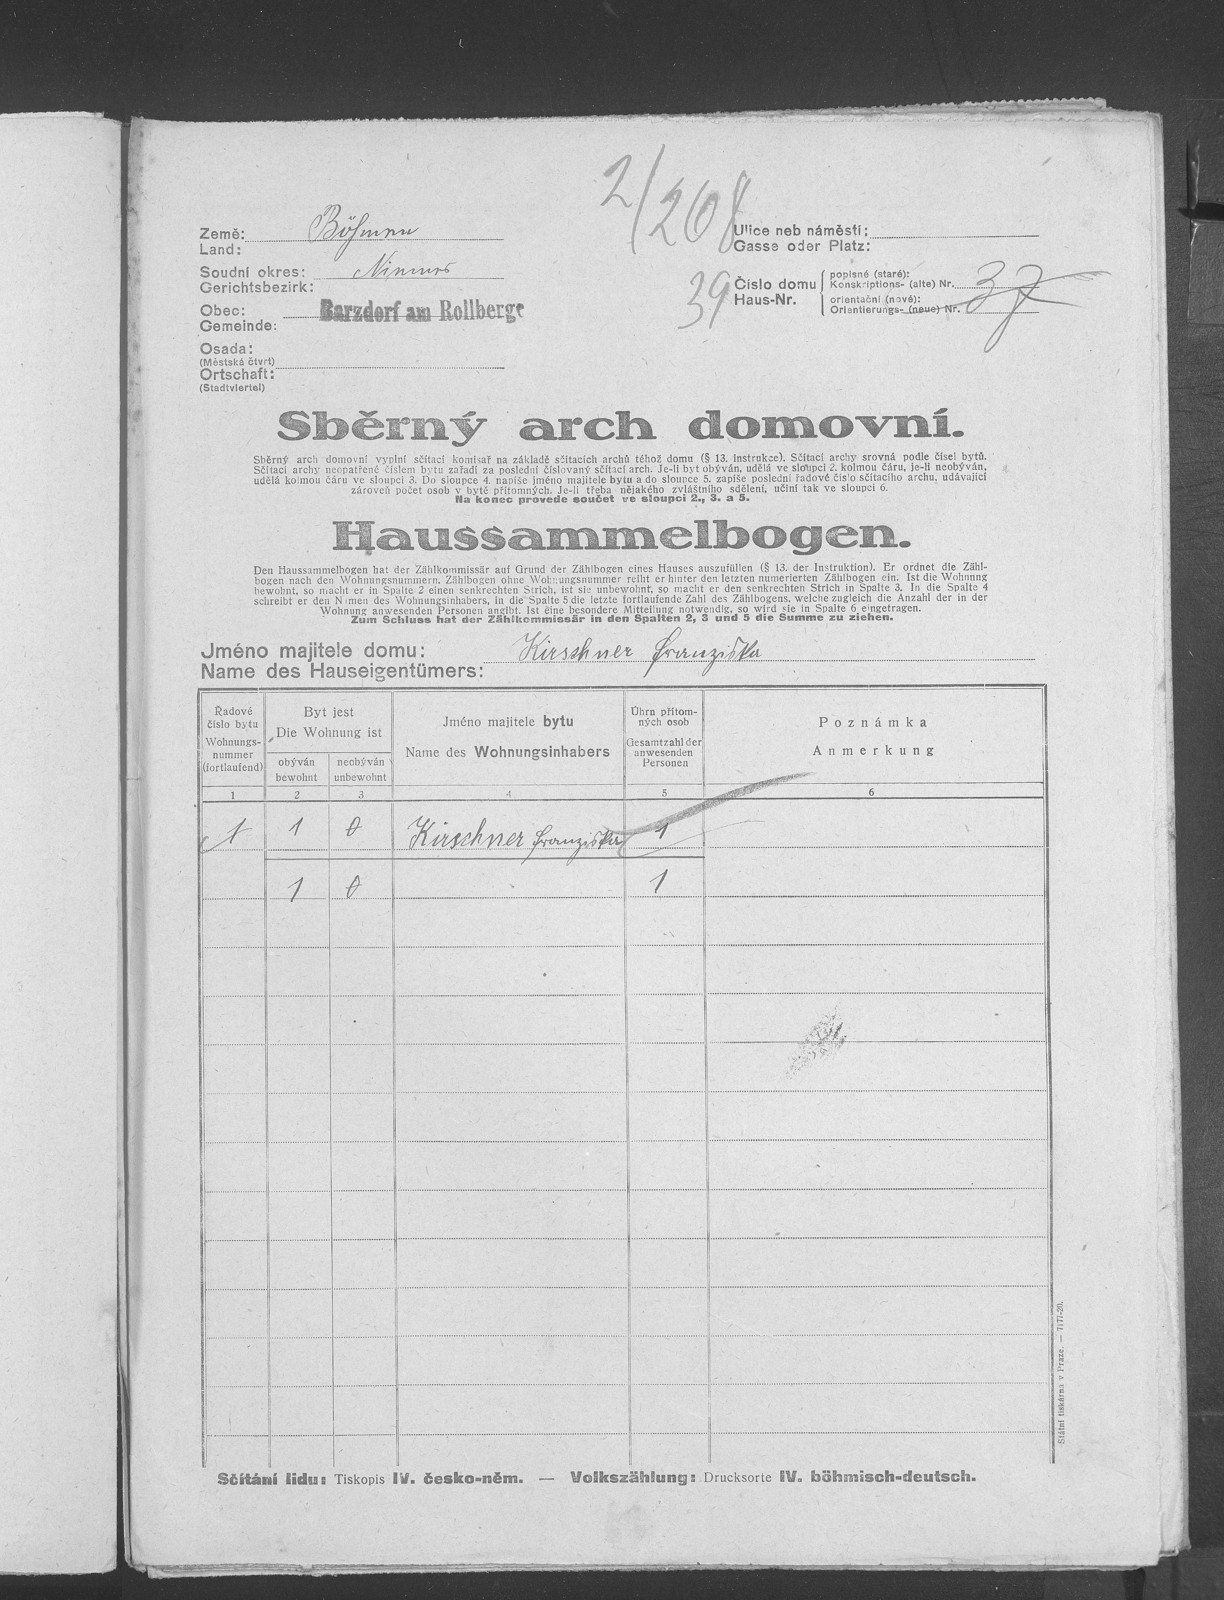 2/208
Země: Böhmen
Land:
Soudní okres: Niemes
Gerichtsbezirk:
Obec: Barzdorf am Rollberge
Gemeinde:
Osada:
(Městská čtvrt)
Ortschaft:
(Stadtviertel)
Ulice neb náměstí:
Gasse oder Platz:
39
Číslo domu
Haus-Nr.
popisné (staré):
Konskriptions- (alte) Nr. 37
orientační (nové):
Orientierungs- (neue) Nr.
Sběrný arch domovní.
Sběrný arch domovní vyplní sčítací komisař na základě sčítacích archů téhož domu (§ 13. instrukce). Sčítací archy srovná podle čísel bytů.
Sčítací archy neopatřené číslem bytu zařadí za poslední číslovaný sčítací arch. Je-li byt obýván, udělá ve sloupci 2. kolmou čáru, je-li neobýván,
udělá kolmou čáru ve sloupci 3. Do sloupce 4. napíše jméno majitele bytu a do sloupce 5. zapíše poslední řadové číslo sčítacího archu, udávající
zároveň počet osob v bytě přítomných. Je-li třeba nějakého zvláštního sdělení, učiní tak ve sloupci 6.
Na konec provede součet ve sloupci 2., 3. a 5.
Haussammelbogen.
Den Haussammelbogen hat der Zählkommissär auf Grund der Zählbogen eines Hauses auszufüllen (§ 13. der Instruktion). Er ordnet die Zähl-
bogen nach den Wohnungsnummern. Zählbogen ohne Wohnungsnummer reiht er hinter den letzten numerierten Zählbogen ein. Ist die Wohnung
bewohnt, so macht er in Spalte 2 einen senkrechten Strich, ist sie unbewohnt, so macht er den senkrechten Strich in Spalte 3. In die Spalte 4
schreibt er den Namen des Wohnungsinhabers, in die Spalte 5 die letzte fortlaufende Zahl des Zählbogens, welche zugleich die Anzahl der in der
Wohnung anwesenden Personen angibt. Ist eine besondere Mitteilung notwendig, so wird sie in Spalte 6 eingetragen.
Zum Schluss hat der Zählkommissär in den Spalten 2, 3 und 5 die Summe zu ziehen.
Jméno majitele domu: Kirschner Franziska
Name des Hauseigentümers:
Řadové
číslo bytu
Wohnungs-
nummer
(fortlaufend)
Byt jest
Die Wohnung ist
obýván
bewohnt
neobýván
unbewohnt
Jméno majitele bytu
Name des Wohnungsinhabers
Úhrn přítom-
ných osob
Gesamtzahl der
anwesenden
Personen
Poznámka
Anmerkung
1 2 3 4 5 6
1 1 0 Kirschner Franziska 1
1 0 1
Státní tiskárna v Praze. — 7177-20.
Sčítání lidu: Tiskopis IV. česko-něm. — Volkszählung: Drucksorte IV. böhmisch-deutsch.